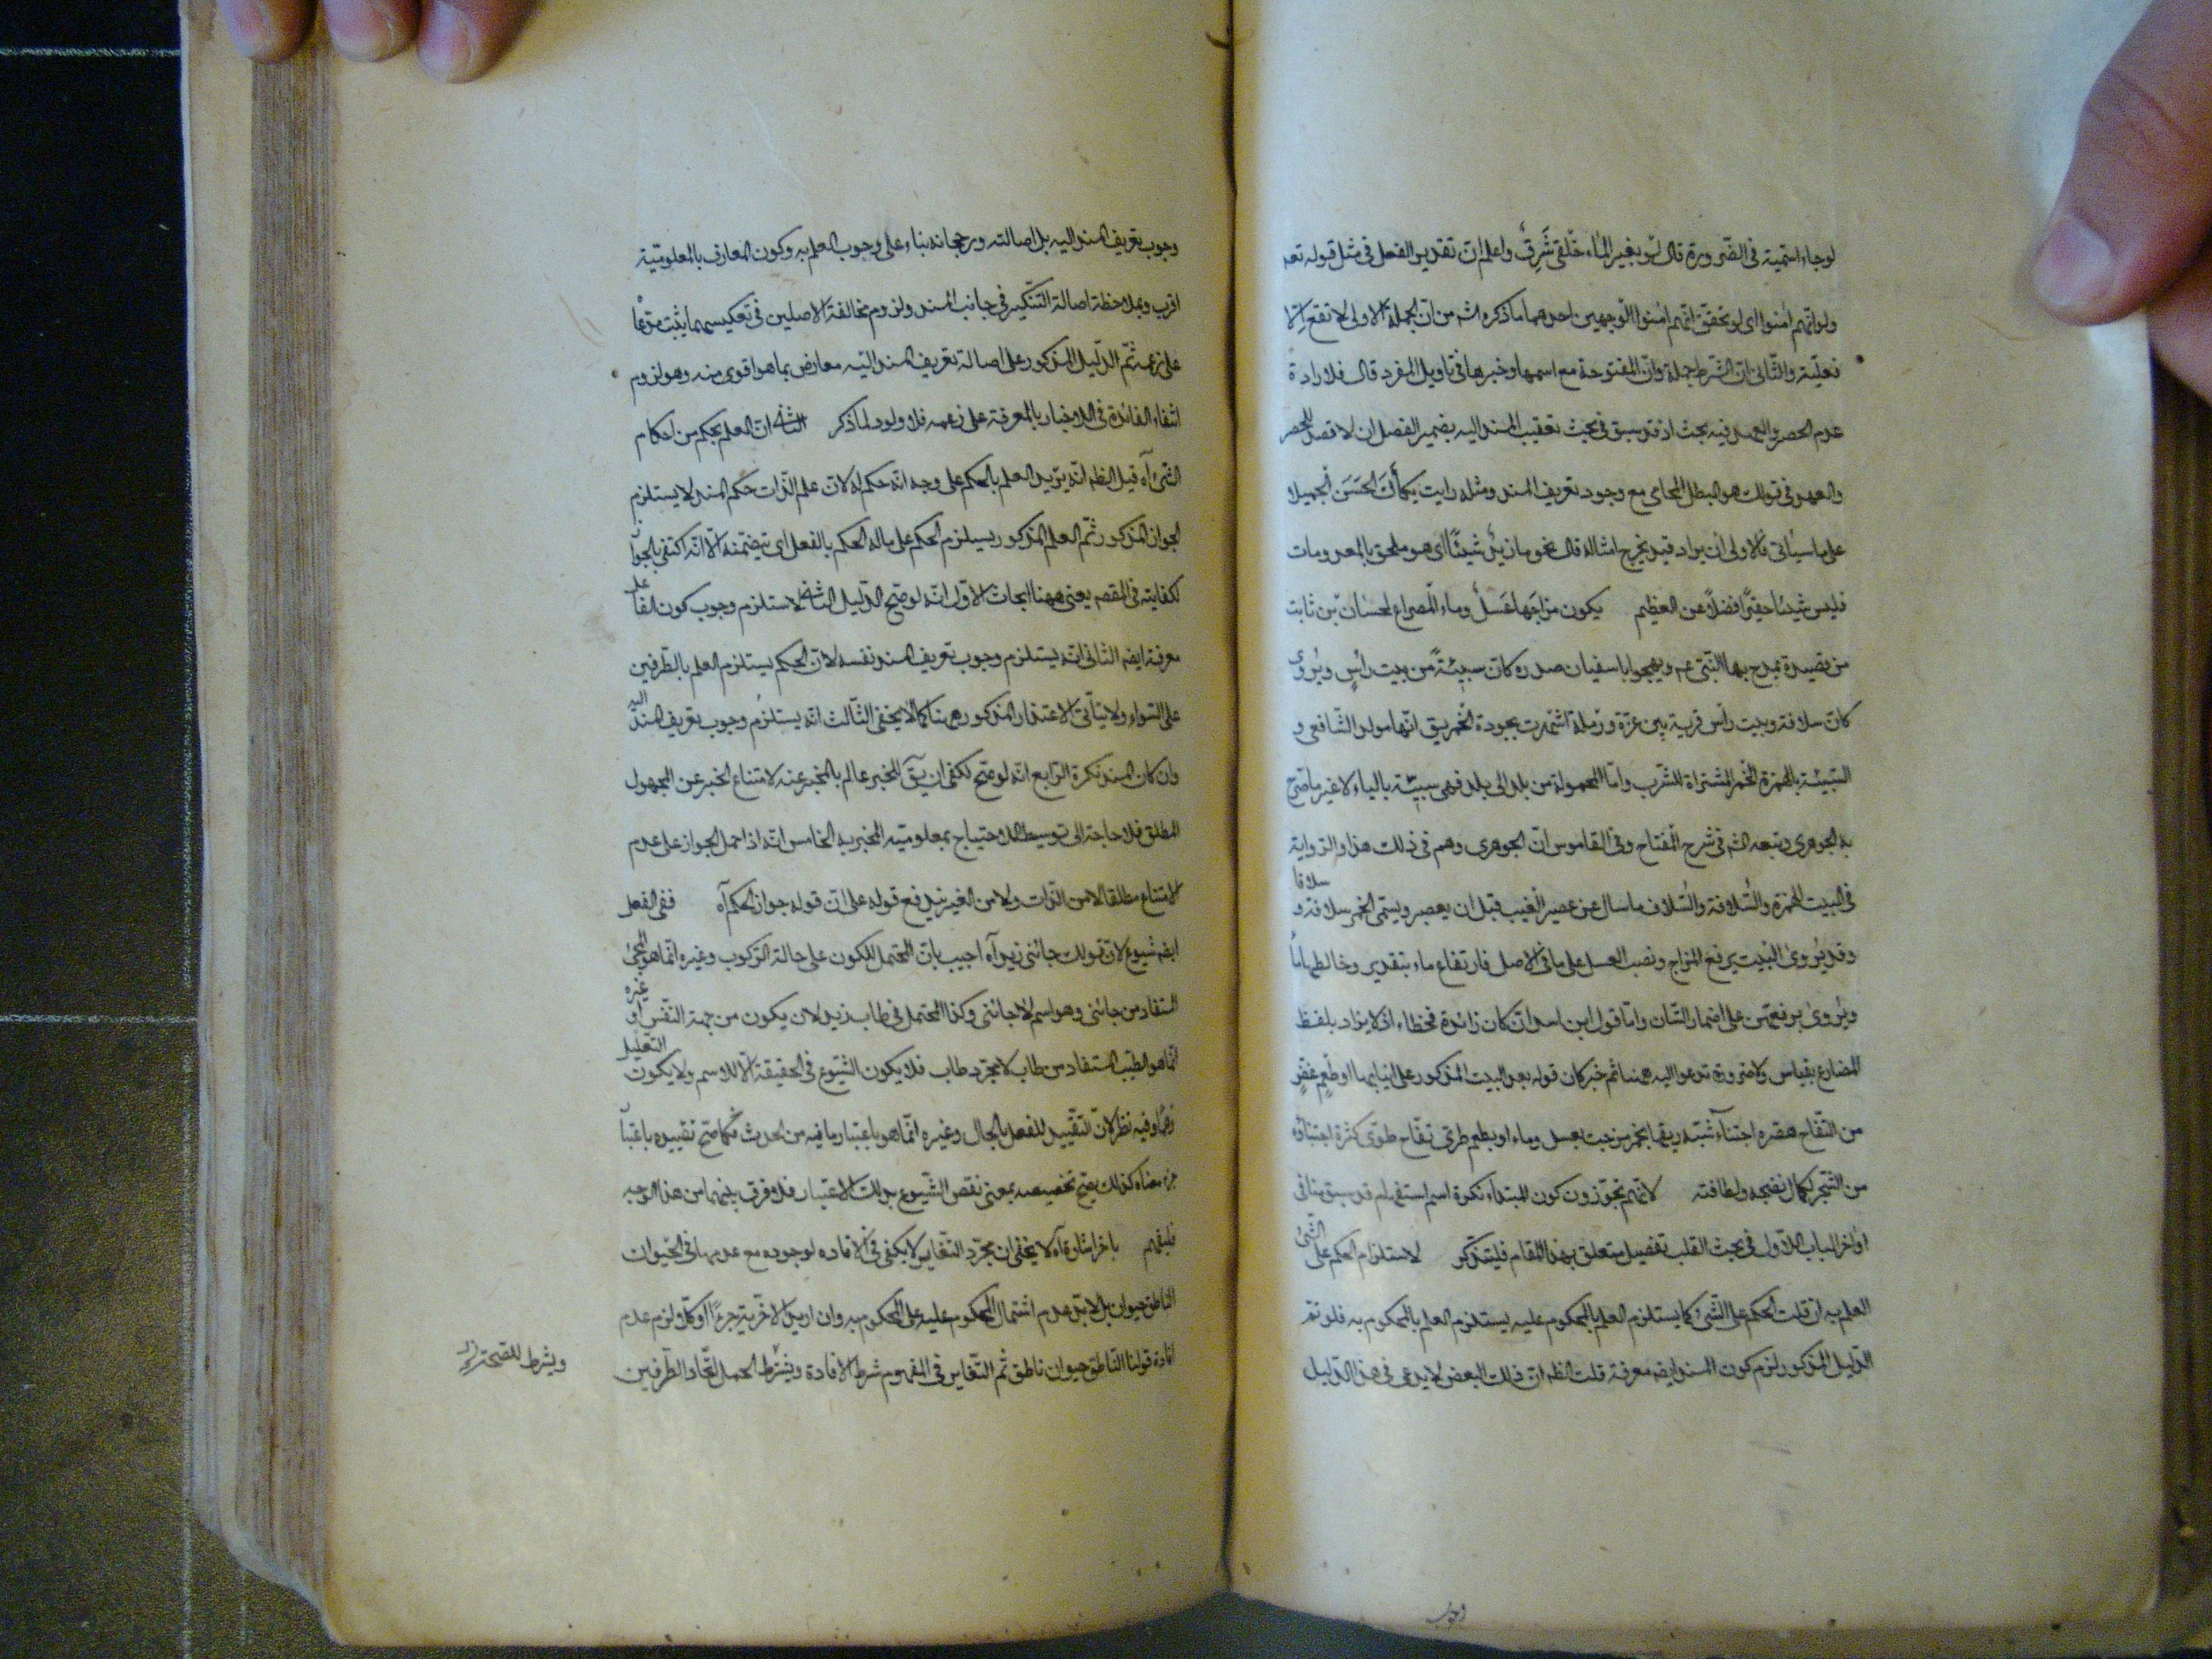 لوجاء اسمية في الضرورة قال لو بغير الماء حلقي شَرِقٌ واعلم ان تقدير الفعل في مثل قوله تعه
ولو انهم امنوا اى لو تحقق انهم امنوا الوجهين احدهما ما ذكره الشه من ان الجملة الاولى لا تقع الا
فعلية والثاني ان الشرط جملة وان المفتوحة مع اسمها وخبرها في تاويل المفرد قال فلارادة
عدم الحصر والعهد فيه بحث اذ قد سبق في بحث تعقيب المسند اليه بضمير الفصل ان لا قصد للحصر
والعهد في قولك هو البطل المحامى مع وجود تعريف المسند ومثله رايت بكاءك الحسَنَ الجميلا
على ما سيأتى فالاولى ان يراد قيد يخرج امثاله قال نحو ما زيدٌ شيئًا اى هو ملحق بالمعدومات
فليس شيئا حقيرًا فضلاً عن العظيم يكون مزاجَها عَسَلٌ وماء المصراع لحسان بن ثابت
من قصيدة يمدح بها النبي عم ويهجو ابا سفيان صدره كان سبيئةً من بيت راسٍ ويُروى
كان سلافة وبيت رأس قرية بين غزة ورملة اشتهرت بجودة الخمر يق انها مولد الشافعي و
السبيئة بالهمزة الخمر المشتراة للشرب واما المحمولة من بلد الى بلد فهى سبيّة بالياء لا غير ما صرح
به الجوهرى وتبعه الشه في شرح المفتاح وفي القاموس ان الجوهرى وهم في ذلك هذا والرواية
في البيت الهمزة والسُلافة والسُلاف ما سال عن عصير العنب قبل ان يعصر ويسمى الخمر سلافة و سلافا
وقد يُروىٰ البيت يرفع المزاج ونصب العسل على ما في الاصل فارتفاع ماء بتقدير وخالطها ماءٌ
ويُروىٰ برفعهن على اضمار الشان واما قول ابن اسد ان كان زائدة فخطاء اذ لا يزاد بلفظ
المضارع بقياس ولا ضرورة تدعو اليه ههنا ثم خبر كان قوله بعد البيت المذكور على انيابها او طَعمِ غضٍّ
من التفاح هصره اجتناء شبّه ريقها بخمر مزجت بعسل وماء او بطعم طرى تفاح طوى كثرة اجتناؤه
من الشجر لكمال نضجه ولطافته لانهم يجوّزون كون المبتداء نكرة اسم استفهام قد سبق منا في
اواخر الباب الاول في بحث القلب تفصيل متعلق بهذا المقام فليتذكر لاستلزام الحكم على الشئ
العلم به ان قلت الحكم على الشئ كما يستلزم العلم بالمحكوم عليه يستلزم العلم بالمحكوم به فلو تم
الدليل المذكور لزم كون المسند ايضه معرفة قلت الظه ان ذلك البعض لا يدعى في هذا الدليل
وجوب
وجوب تعريف المسند اليه بل اصالته ورجحانه بناء على وجوب العلم به وكون المعارف بالمعلومية
اقرب وبملاحظة اصالة التنكير في جانب المسند ولزوم مخالفة الاصلين في تعكيسهما يثبت مدعا
على زعمه ثم الدليل المذكور على اصالة تعريف المسند اليه معارض بما هو اقوى منه وهو لزوم
انتفاء الفائدة في الاخبار بالمعرفة على زعمه فلا ورود لما ذكر الثانى ان العلم بحكم من احكام
الشئ آه قيل الظه انه يريد العلم بالحكم على وجه انه حكم له لان علم الذات حكم المسند لا يستلزم
الجواز المذكور ثم العلم المذكور يستلزم الحكم على ماله الحكم بالفعل اى يتضمنه الا انه اكتفى بالجوا
لكفايته في المقصه يعنى ههنا ابحاث الاول انه لو صح الدليل الثانى لاستلزم وجوب كون الفاعل
معرفة ايضه الثانى انه يستلزم وجوب تعريف المسند نفسه لان الحكم يستلزم العلم بالطرفين
على السواء ولا يتأتى الاعتذار المذكور ههنا كما لا يخفى الثالث انه يستلزم وجوب تعريف المسند اليه
وان كان المسند نكرة الرابع انه لو صح لكفى ان يق المخبر عالم بالمخبر عنه لامتناع الخبر عن المجهول
المطلق فلا حاجة الى توسيط الاحتياج بمعلومية المخبر به الخامس انه اذا حمل الجواز على عدم
الامتناع مطلقا لا من الذات ولا من الغير يندفع قوله على ان قوله جواز الحكم آه ففى الفعل
ايضه شيوع لان قولك جائنى زيد آه اجيب بان المحتمل للكون على حالة الركوب وغيره انما هو المجئ
المستفاد من جائنى وهو اسم لا جائنى وكذا المحتمل في طاب زيد لان يكون من جهة النفس او غيره
انما هو الطيب المستفاد من طاب لا مجرد طاب فلا يكون الشيوع في الحقيقة الا للاسم ولا يكون التعليل
وفيه نظر لان التقييد للفعل بالحال وغيره انما هو باعتبار ما فيه من الحدث فكما صح تقييده باعتبا
جزء معناه كذلك يصح تخصيصه بمعنى نقص الشيوع بذلك الاعتبار فلا فرق بينهما من هذا الوجه
فليفهم باخر اشارة آه لا يخفى ان مجرد التغاير لا يكفى في الافاده لوجوده مع عدمها في الحيوان
الناطق حيوان بل لا بد عدم اشتمال المحكوم عليه على المحكوم به وان اريد الآخرية جزءًا او كلا لزم عدم
افادة قولنا الناطق حيوان ناطق ثم التغاير في المفهوم شرط الافادة ويشترط الحمل اتحاد الطرفين
ويشرط للصحة